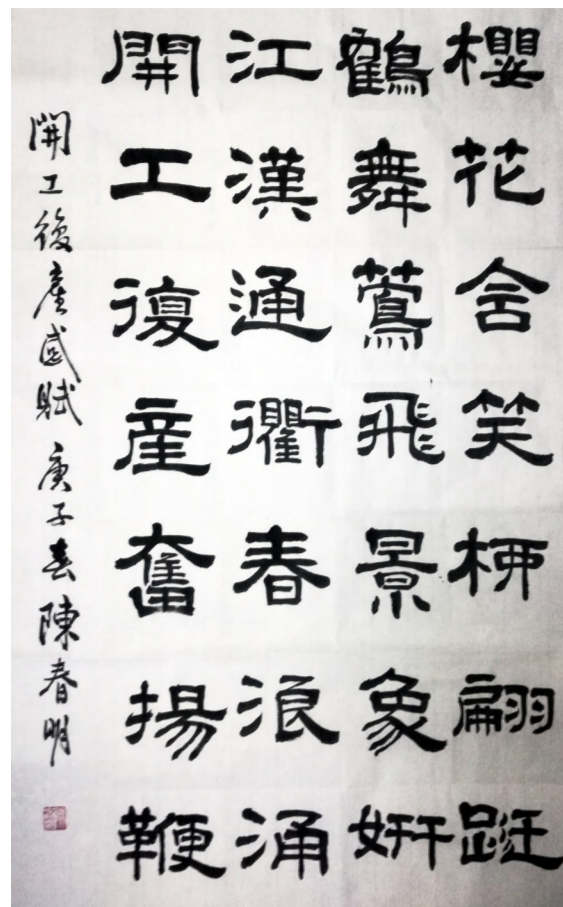 櫻花含笑柳翩跹
鶴舞鶯飛景象妍
江漢通衢春浪涌
開工復産奮揚鞭
開工復産感賦 庚子春 陳春明